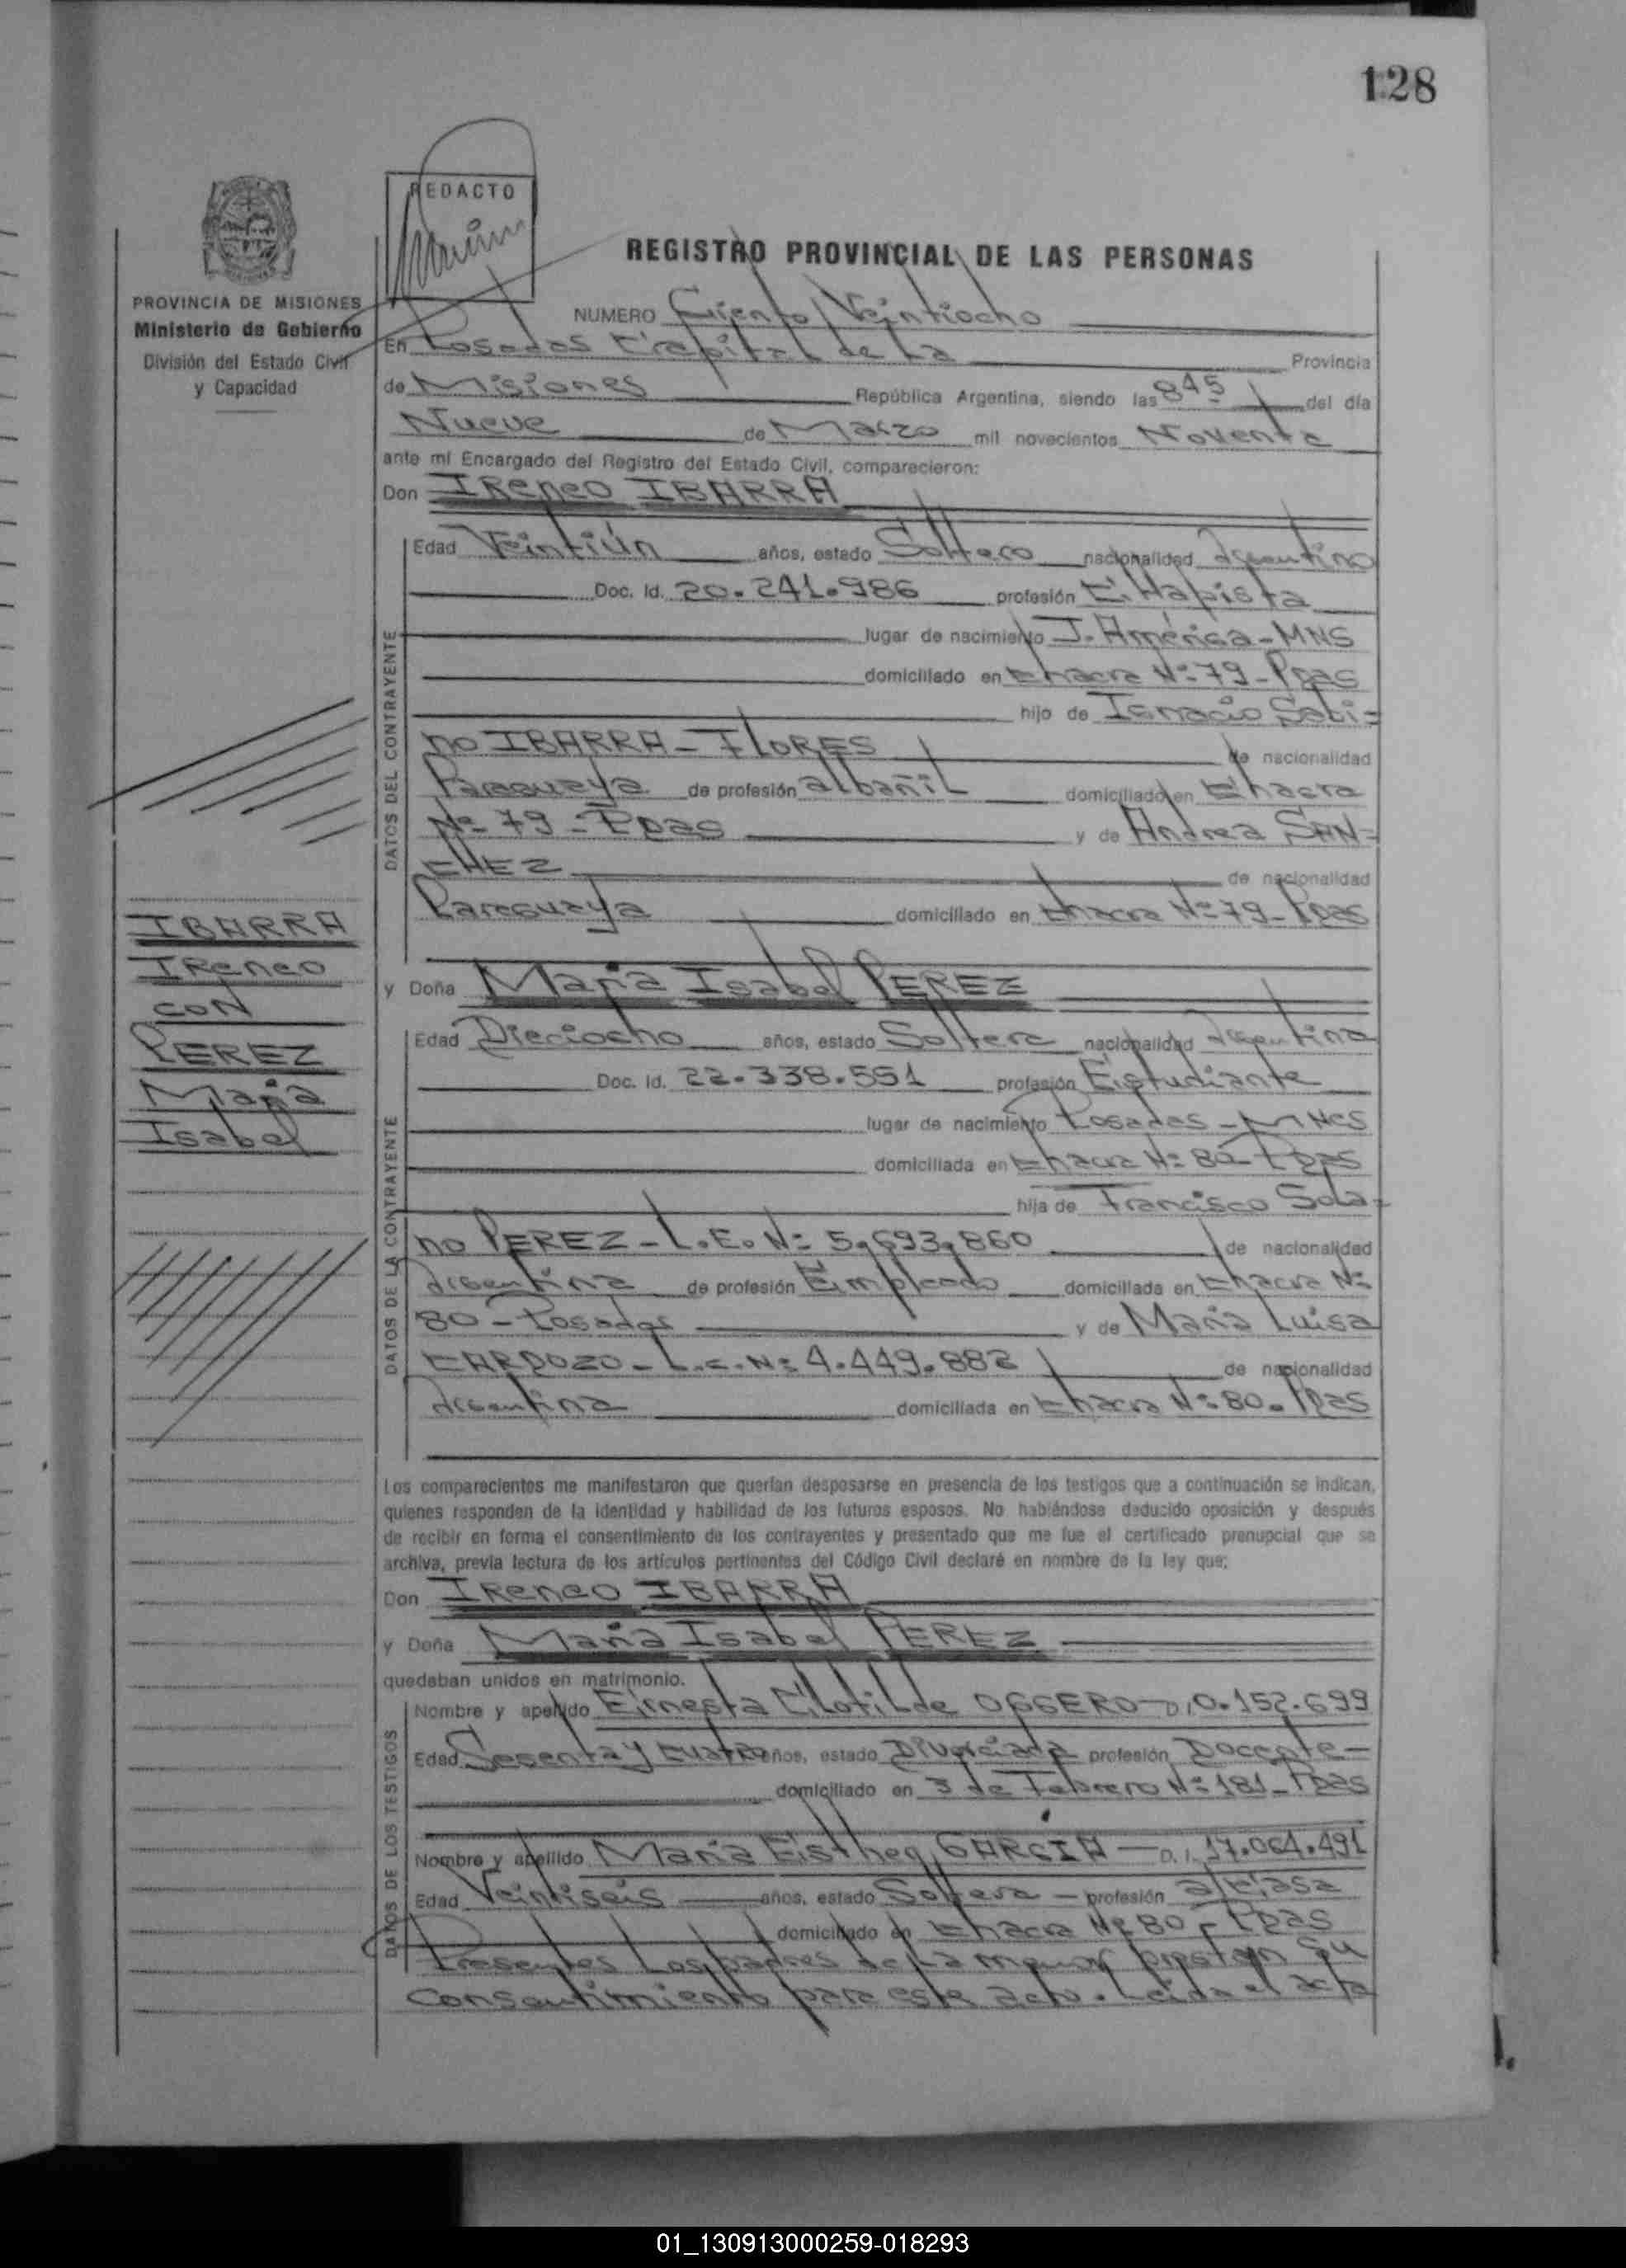 128
REDACTO
REGISTRO PROVINCIAL DE LAS PERSONAS
PROVINCIA DE MISIONES
Ministerio de Gobierno
División del Estado Civil
y Capacidad
NUMERO Ciento Veintiocho
En Posadas Capital de La Provincia
de Misiones República Argentina, siendo las 845 del día
Nueve de Marzo mil novecientos Noventa
ante mí Encargado del Registro del Estado Civil, comparecieron:
Don IReneo IBARRA
DATOS DEL CONTRAYENTE
Edad Veintiún años, estado Soltero nacionalidad Argentino
Doc. Id. 20.241.986 profesión
lugar de nacimiento J. América-MNS
domiciliado en Chacra Nº 79-Pdas
hijo de Ignacio Sabi=
no IBARRA-FLORES de nacionalidad
Paraguaya de profesión albañil domiciliado en Chacra
Nº 79-Pdas y de Andrea SAN=
CHEZ de nacionalidad
Paraguaya domiciliado en Chacra Nº 79-Pdas
IBARRA
IReneo
CON
PEREZ
María
Isabel
y Doña María Isabel PEREZ
DATOS DE LA CONTRAYENTE
Edad Dieciocho años, estado Soltera nacionalidad Argentina
Doc. Id. 22.338.551 profesión Estudiante
lugar de nacimiento Posadas-MNES
domiciliada en Chacra Nº 80-Pdas
hija de Francisco Sola=
no PEREZ-L.E.Nº 5.693.860 de nacionalidad
Argentina de profesión Empleado domiciliada en Chacra Nº
80-Posadas y de María Luisa
CARDOZO-L.C.Nº 4.449.882 de nacionalidad
Argentina domiciliada en Chacra Nº 80-Pdas
Los comparecientes me manifestaron que querían desposarse en presencia de los testigos que a continuación se indican,
quienes responden de la identidad y habilidad de los futuros esposos. No habiéndose deducido oposición y después
de recibir en forma el consentimiento de los contrayentes y presentado que me fue el certificado prenupcial que se
archiva, previa lectura de los artículos pertinentes del Código Civil declaré en nombre de la ley que:
Don IReneo IBARRA
y Doña María Isabel PEREZ
quedaban unidos en matrimonio.
DATOS DE LOS TESTIGOS
Nombre y apellido Ernesta Clotilde OGGERO-D.I 0.152.699
Edad Sesenta y cuatro años, estado Divorciada profesión Docente-
domiciliado en 3 de Febrero Nº 181-Pdas
Nombre y apellido María Esther GARCIA - D.I. 17.064.491
Edad Veintiseis años, estado Soltera - profesión
domiciliado en Chacra Nº 80-Pdas
Presentes Los padres de La menor prestan su
consentimiento para este acto. Leida el acta
01_130913000259-018293